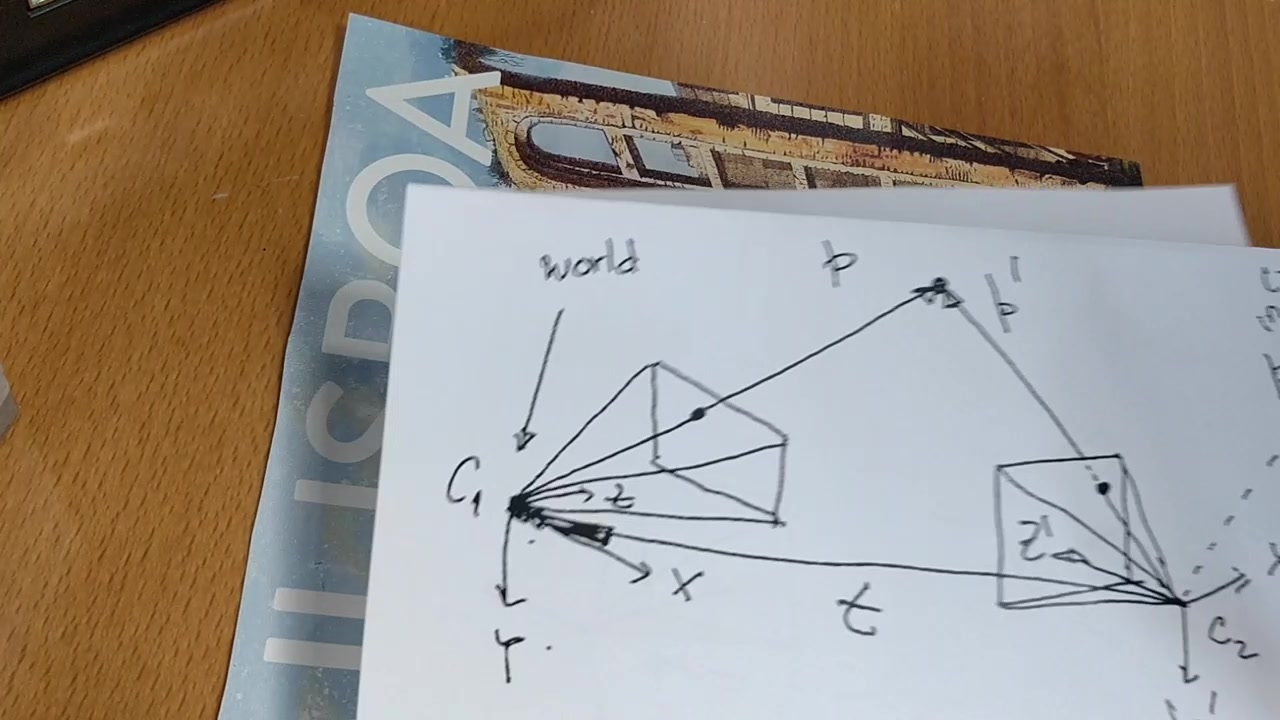 LISBOA
world
p
p'
C₁
z
z'
x
t
Y
C₂